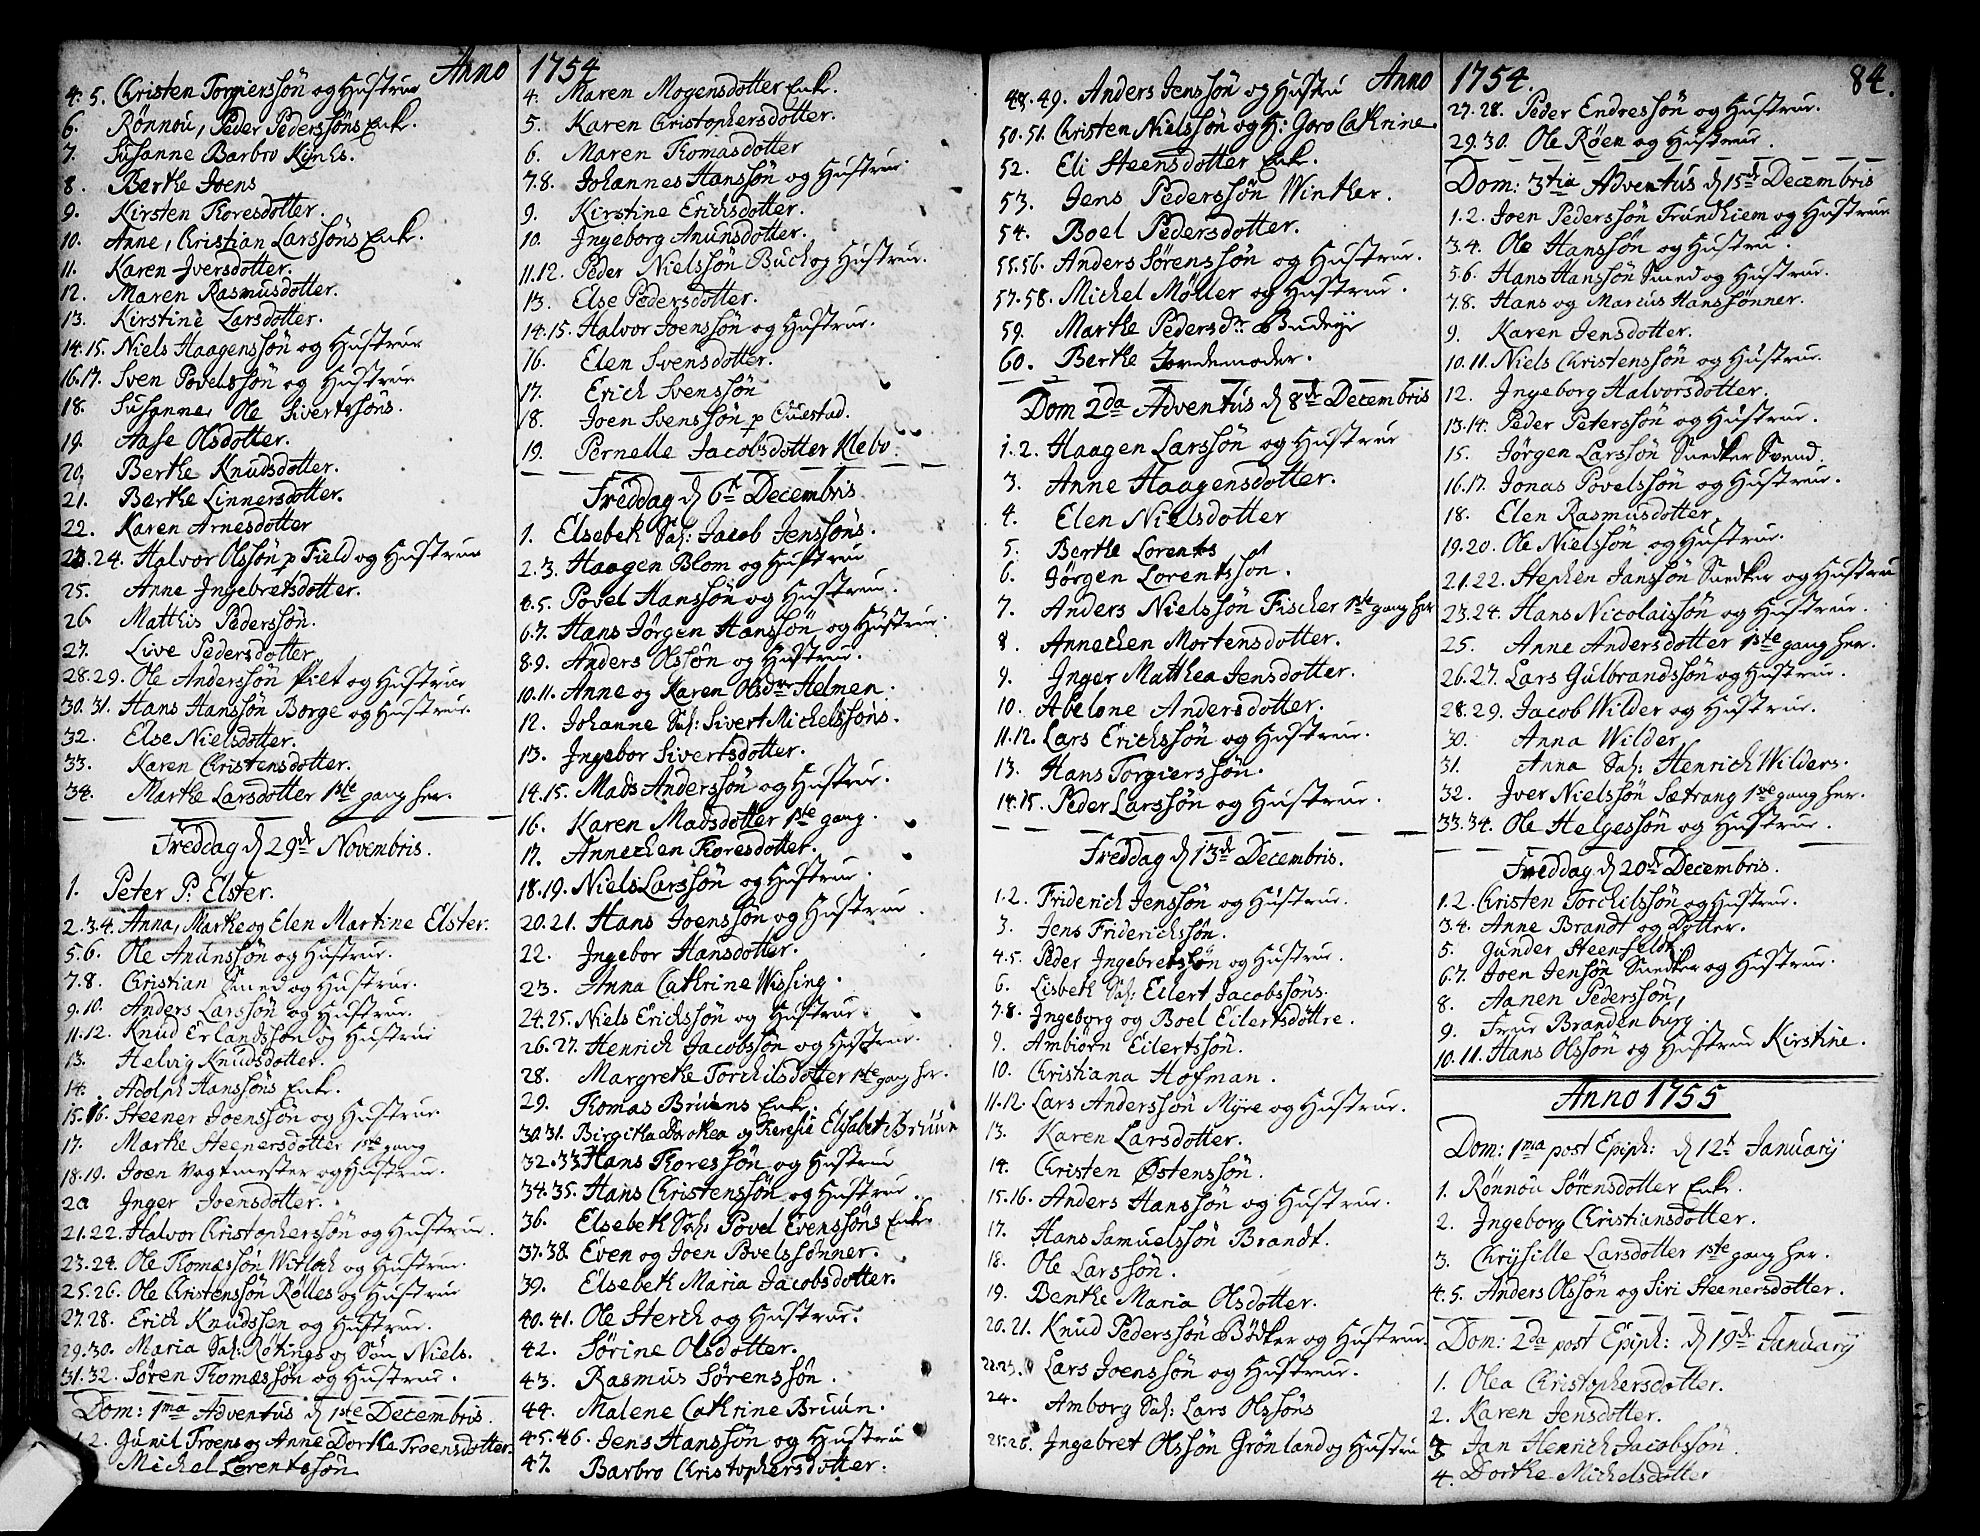 Anno 1754
4. 5. Christen Torgiersøn og Hustrue
6. Rønnou, Peder Pedersøns Enke.
7. Susanne Barbro
8. Berthe Joens
9. Kirsten Thoresdotter.
10. Anne, Christian Larssøns Enke.
11. Karen Iversdotter.
12. Maren Rasmusdotter.
13. Kirstine Larsdotter.
14.15. Niels Haagenssøn og Hustrue
16.17. Sven Povelssøn og Hustrue
18. Susanne, Ole Sivertssøns.
19. Aase Olsdotter.
20. Berthe Knudsdotter.
21. Berthe Linnersdotter.
22. Karen Arnesdotter
23.24. Halvor Olssøn p Field og Hustrue
25. Anne Ingebretsdotter.
26. Matthis Pederssøn.
27. Live Pedersdotter
28.29. Ole Anderssøn Pilt og Hustrue
30.31. Hans Hanssøn Borge og Hustrue.
32. Else Nielsdotter.
33. Karen Christensdotter.
34. Marthe Larsdotter 1ste gang her.
Freddag d 29de Novembris.
1. Peter P: Elster.
2.3.4. Anna, Marthe og Elen Martine Elster.
5.6. Ole Anunssøn og Hustrue.
7.8. Christian Smed og Hustrue.
9.10. Anders Larssøn og Hustrue.
11.12. Knud Erlandssøn og Hustrue
13. Helvig Knudsdotter.
14. Adolph Hanssøns Enke.
15.16. Steener Joenssøn og Hustrue
17. Marthe Steenersdotter 1ste gang
18.19. Joen Vagtmester og Hustrue.
20 Inger Joensdotter.
21.22. Halvor Christopherssøn og Hustrue.
23.24. Ole Thomæssøn Witloch og Hustrue.
25.26. Ole Christenssøn Rølles og Hustrue
27.28. Erich Knudssen og Hustrue.
29.30. Maria Sal: Røtings og Søn Niels.
31.32. Søren Thomæssøn og Hustrue.
Dom: 1ma Adventus d 1ste Decembris.
1.2. Gunil Troens og Anne Dorthe Troensdotter.
Michel Lorentssøn
4. Maren Mogensdotter Enke.
5. Karen Christophersdotter.
6. Maren Thomasdotter
7.8. Johannes Hanssøn og Hustrue.
9. Kirstine Erichsdotter.
10. Ingeborg Anunsdotter.
11.12. Peder Nielssøn Buch og Hustrue.
13. Else Pedersdotter.
14.15. Halvor Joenssøn og Hustrue.
16. Elen Svensdotter.
17. Erich Svenssøn
18. Joen Svenssøn p Ouestad.
19. Pernelle Jacobsdotter Klebo.
Freddag d 6te Decembris
1. Elsebeth Sal: Jacob Jenssøns.
2.3. Haagen Blom og Hustrue
4.5. Povel Hanssøn og Hustrue.
6.7. Hans Jørgen Hanssøn og Hustrue.
8.9. Anders Olssøn og Hustrue.
10.11. Anne og Karen Olsdtr Helmen.
12. Johanne Sal: Sivert Michelssøns.
13. Ingebor Sivertsdotter.
14.15. Mads Anderssøn og Hustrue.
16. Karen Madsdotter 1ste gang.
17. Annechen Thoresdotter.
18.19. Niels Larssøn og Hustrue.
20.21. Hans Joenssøn og Hustrue.
22. Ingebor Hansdotter.
23. Anna Cathrine Wissing.
24.25. Niels Erichssøn og Hustrue
26.27. Henrich Jacobssøn og Hustrue.
28. Margrethe Torchilsdotter 1ste gang her.
29. Thomas Bruuns Enke.
30.31. Birgitha Dorothea og Theresie Elisabet Bruun
32.33 Hans Thoressøn og Hustrue
34.35. Hans Christenssøn og Hustrue.
36. Elsebeth Sal: Povel Evenssøns Enke.
37.38. Even og Joen Povelssønner.
39. Elsebeth Maria Jacobsdotter.
40.41. Ole Sterch og Hustrue.
42. Sørine Olsdotter.
43. Rasmus Sørenssøn.
44. Malene Cathrine Bruun.
45.46. Jens Hanssøn og Hustrue
47. Barbro Christophersdotter.
Anno 1754. 84.
48.49. Anders Jenssøn og Hustru
50.51. Christen Nielssøn og H: Goro Cathrine
52. Eli Steensdotter Enke.
53. Jens Pederssøn Winther.
54. Boel Pedersdotter.
55.56. Anders Sørenssøn og Hustrue.
57.58. Michel Møller og Hustrue.
59. Marthe Pedersdtr Budeye
60. Berthe Jordemoder.
Dom 2da Adventus d 8de Decembris
1.2. Haagen Larssøn og Hustrue
3. Anne Haagensdotter.
4. Elen Nielsdotter
5. Berthe Lorents
6. Jørgen Lorentssøn.
7. Anders Nielssøn Fischer 1ste gang her
8. Annechen Mortensdotter.
9. Inger Matthea Jensdotter.
10. Abelone Andersdotter.
11.12. Lars Erichssøn og Hustrue.
13. Hans Torgierssøn.
14.15. Peder Larssøn og Hustrue.
Freddag d 13de Decembris.
1.2. Friderich Jenssøn og Hustrue.
3. Jens Friderichssøn.
4.5. Peder Ingebretssøn og Hustrue.
6. Lisbeth Sal: Eilert Jacobssøns.
7.8. Ingeborg og Boel Eilertsdøttre.
9. Ambiørn Eilertssøn.
10. Christiana Hofman.
11.12. Lars Anderssøn Myre og Hustrue.
13. Karen Larsdotter.
14. Christen Østenssøn.
15.16. Anders Hanssøn og Hustrue.
17. Hans Samuelssøn Brandt.
18. Ole Larssøn.
19. Benthe Maria Olsdotter.
20.21. Knud Pederssøn Bødker og Hustrue.
22.23. Lars Joenssøn og Hustrue.
24. Amborg Sal: Lars Olssøns
25.26. Ingebret Olssøn Grønland og Hustru
27.28. Peder Endressøn og Hustrue.
29.30. Ole Røen og Hustrue.
Dom: 3tia Adventus d 15de Decembris
1.2. Joen Pederssøn Trundhiem og Hustrue
3.4. Ole Hanssøn og Hustru.
5.6. Hans Hanssøn Smed og Hustrue.
7.8. Hans og Marcus Hanssønner.
9. Karen Jensdotter.
10.11. Niels Christenssøn og Hustrue.
12. Ingeborg Halvorsdotter.
13.14. Peder Peterssøn og Hustrue.
15. Jørgen Larssøn Snedker Svend.
16.17. Jonas Povelssøn og Hustrue.
18. Elen Rasmusdotter
19.20. Ole Nielssøn og Hustrue.
21.22. Stephen Janssøn Snedker og Hustru
23.24. Hans Nicolaissøn og Hustrue.
25. Anne Andersdotter 1ste gang her.
26.27. Lars Gulbrandssøn og Hustrue.
28.29. Jacob Wilder og Hustrue.
30. Anna Wilder
31. Anna Sal: Henrich Wilders.
32. Iver Nielssøn Sætrang 1ste gang her.
33.34. Ole Helgessøn og Hustrue.
Freddag d 20de Decembris.
1.2. Christen Torchilssøn og Hustrue.
3.4. Anne Brandt og Dotter.
5. Gunder Steenfeldt.
6.7. Joen Jensøn Snedker og Hustrue.
8. Aanen Pederssøn,
9. Frue Brandenburg.
10.11. Hans Olssøn og Hustrue Kirstine.
Anno 1755
Dom: 1ma post Epiph: d 12te Januarij
1. Rønnou Sørensdotter Enke.
2. Ingeborg Christiansdotter.
3. Chrysille Larsdotter 1ste gang her.
4.5. Anders Olssøn og Siri Steenersdotter.
Dom: 2da post Epiph: d 19de Januarij
1. Olea Christophersdotter.
2. Karen Jensdotter.
3 Jan Henrich Jacobssøn.
4. Dorthe Michelsdotter